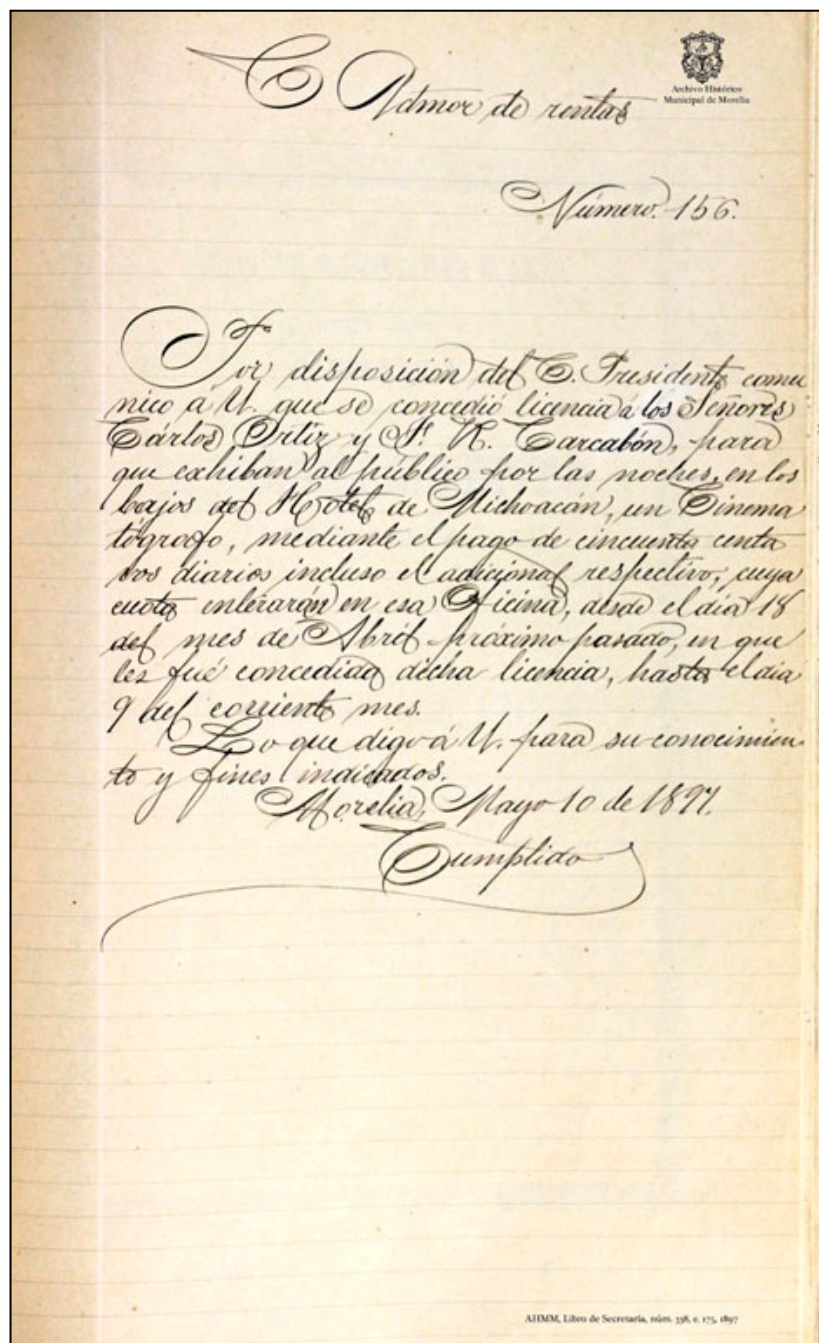 C Admor de rentas
Archivo Histórico
Municipal de Morelia
Número. 156.
Por disposición del C. Presidente comu
nico á U. que se concedió licencia á los Señores
Cárlos Ortiz y P. R. Carcabón, para
que exhiban al público por las noches, en los
bajos del Hotel de Michoacán, un Cinema
tógrafo, mediante el pago de cincuenta centa
vos diarios incluso el adicional respectivo, cuya
cuota enterarán en esa Oficina, desde el día 18
del mes de Abril próximo pasado, en que
les fué concedida dicha licencia, hasta el dia
9 del corriente mes.
Lo que digo á U. para su conocimien-
to y fines indicados.
Morelia, Mayo 10 de 1897.
Cumplido
AHMM, Libro de Secretaría, núm. 338, e. 175, 1897